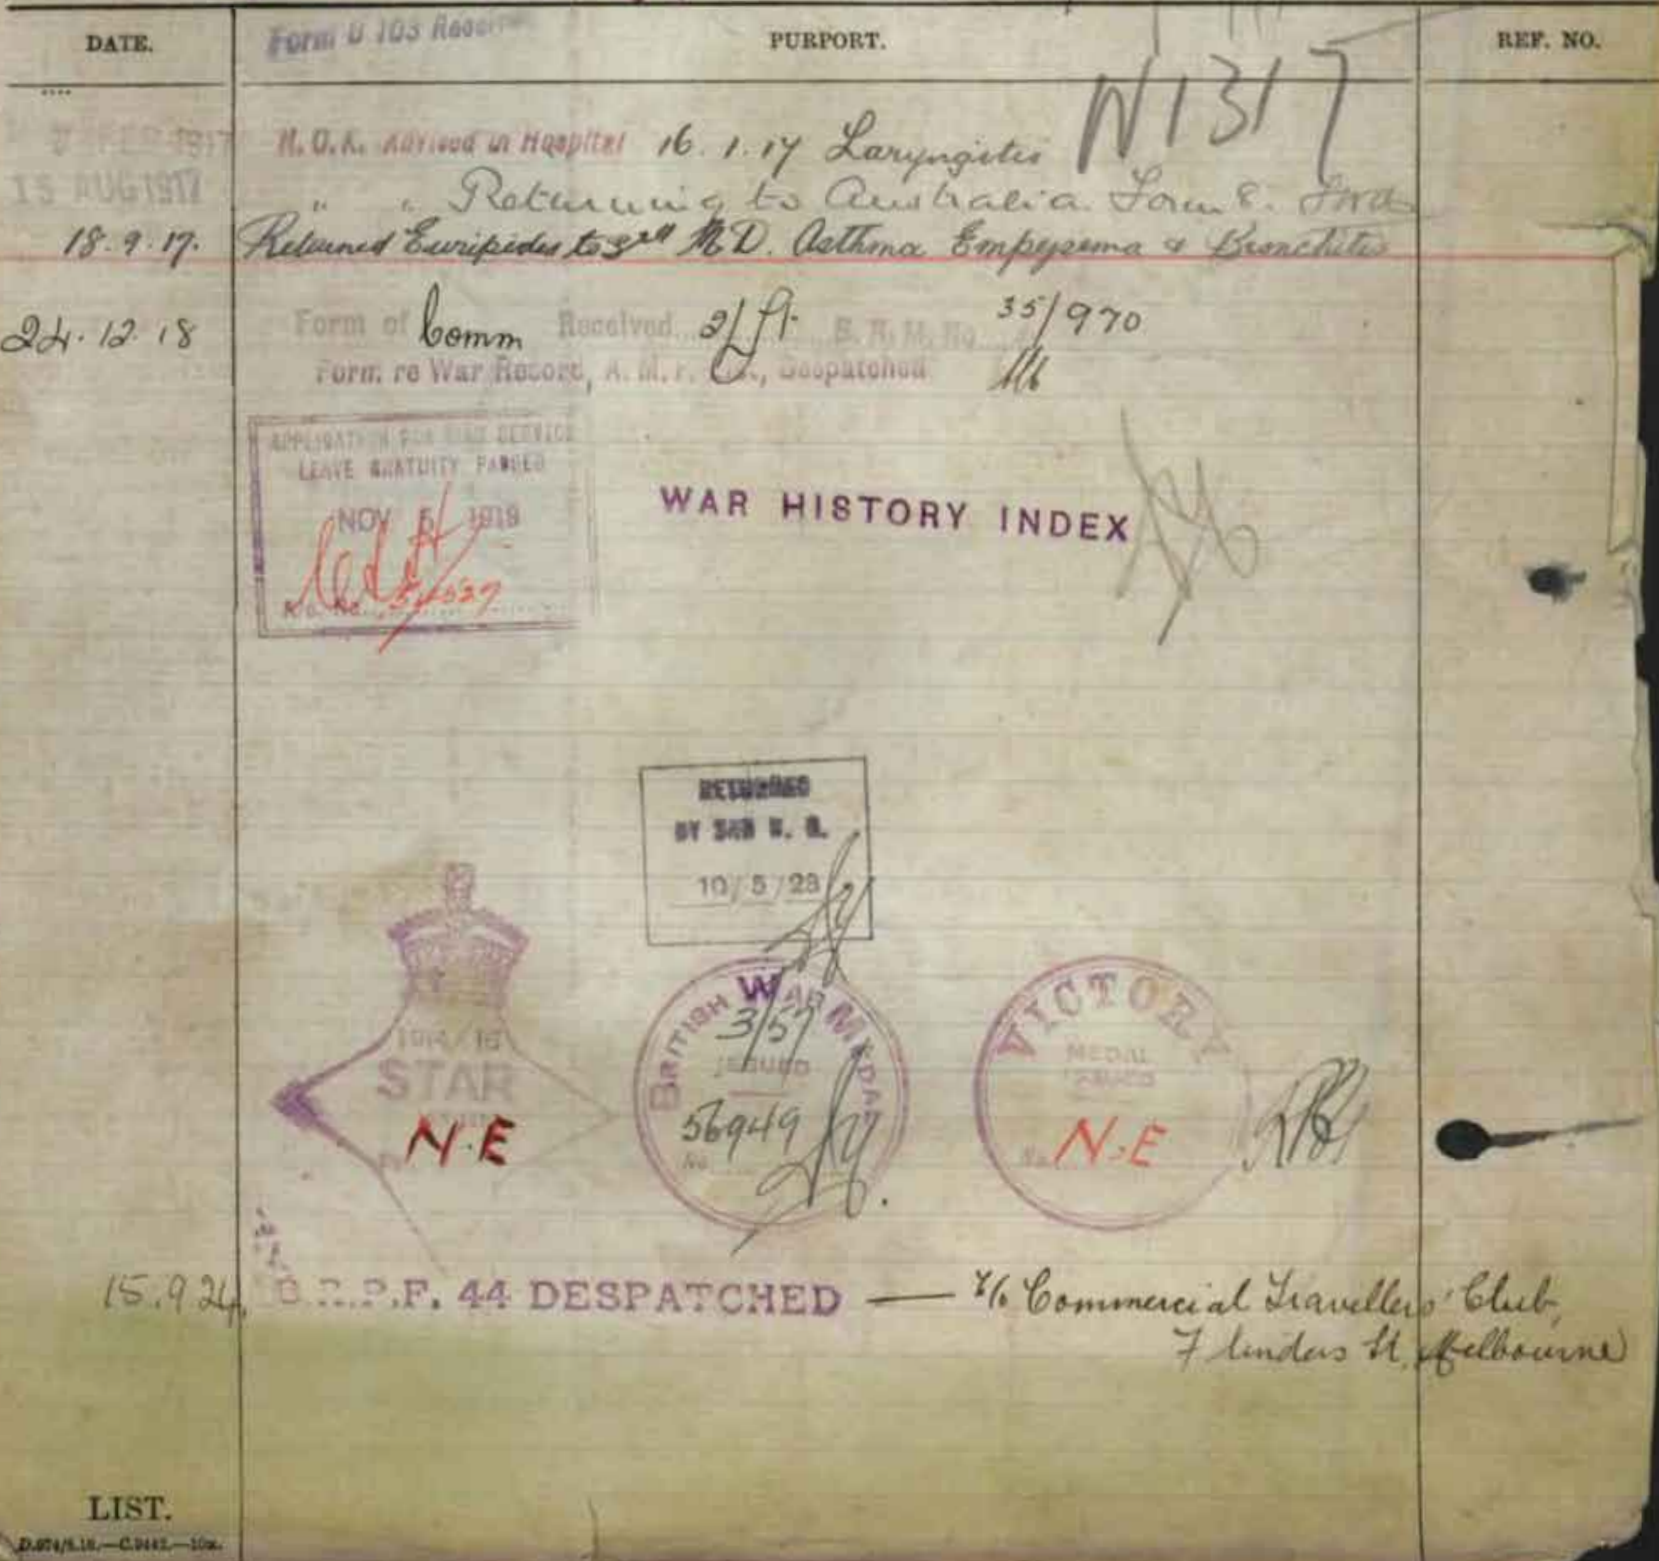 DATE.
Form B 103
PURPORT.
REF. NO.
N1317
FEB 1917 N.O.K. Advised in Hospital 16.1.17 Laryngitis
15 AUG 1917 " " Returning to Australia. Form E.
18.9.17. Returned Euripides to 3rd M D. Asthma Empysema & Bronchitis
24.12.18 Form of Comm Received 2/ B. R. M. No. 35/970
Form re War Record, A. M. F. Despatched
APPLICATION FOR WAR SERVICE
LEAVE GRATUITY PASSED
NOV 5 1919
WAR HISTORY INDEX
RETURNED
BY
10/5/23
1914/15
STAR
N.E
BRITISH WAR MEDAL
3/57
ISSUED
56949
No
VICTORY
MEDAL
ISSUED
No. N.E
15.9.24. B.R.P.F. 44 DESPATCHED — c/o Commercial Travellers' Club,
Flinders St, Melbourne
LIST.